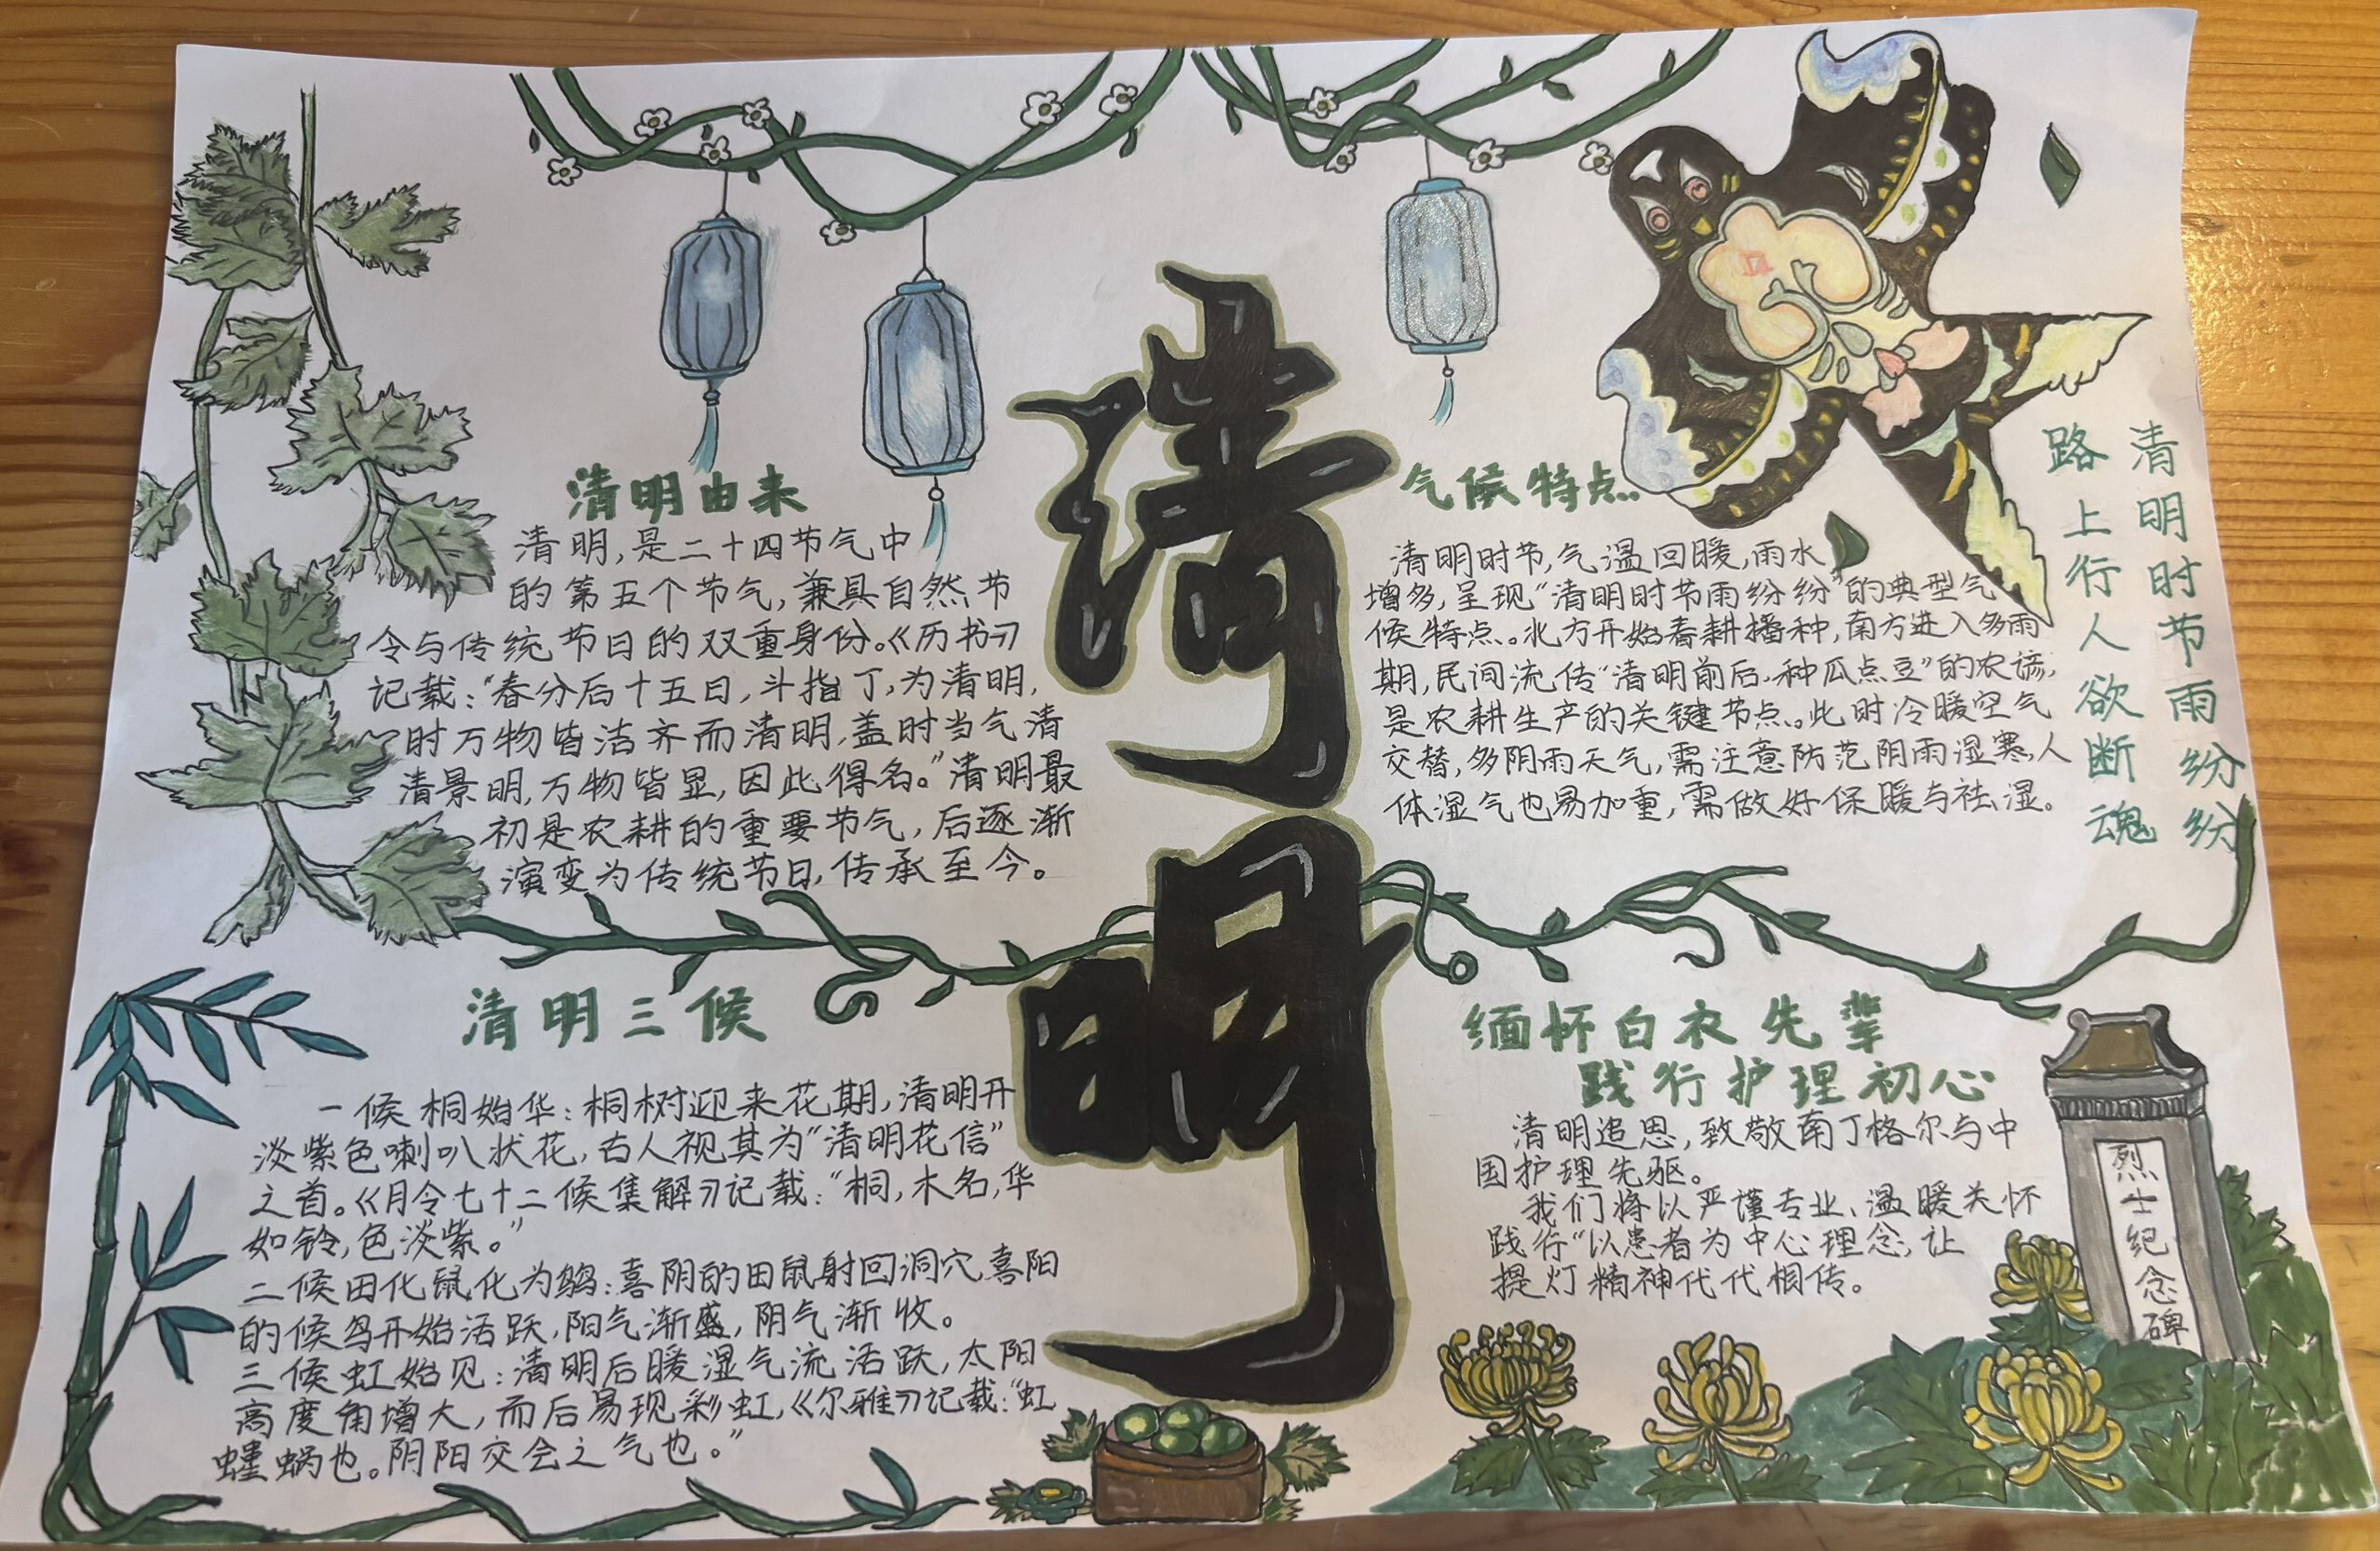 清明
清明由来
清明,是二十四节气中
的第五个节气,兼具自然节
令与传统节日的双重身份。《历书》
记载:“春分后十五日,斗指丁,为清明,
时万物皆洁齐而清明,盖时当气清
清景明,万物皆显,因此得名。”清明最
初是农耕的重要节气,后逐渐
演变为传统节日,传承至今。
气候特点
清明时节,气温回暖,雨水
增多,呈现“清明时节雨纷纷”的典型气
候特点。北方开始春耕播种,南方进入多雨
期,民间流传“清明前后,种瓜点豆”的农谚,
是农耕生产的关键节点。此时冷暖空气
交替,多阴雨天气,需注意防范阴雨湿寒,人
体湿气也易加重,需做好保暖与祛湿。
清明时节雨纷纷
路上行人欲断魂
清明三候
一候桐始华:桐树迎来花期,清明开
淡紫色喇叭状花,古人视其为“清明花信”
之首。《月令七十二候集解》记载:“桐,木名,华
如铃,色淡紫。”
二候田化鼠化为鹌:喜阴的田鼠躲回洞穴喜阳
的候鸟开始活跃,阳气渐盛,阴气渐收。
三候虹始见:清明后暖湿气流活跃,太阳
高度角增大,而后易现彩虹,《尔雅》记载:“虹
蝗蜗也。阴阳交会之气也。”
缅怀白衣先辈
践行护理初心
清明追思,致敬南丁格尔与中
国护理先驱。
我们将以严谨专业、温暖关怀
践行“以患者为中心理念,让
提灯精神代代相传。
烈士纪念碑